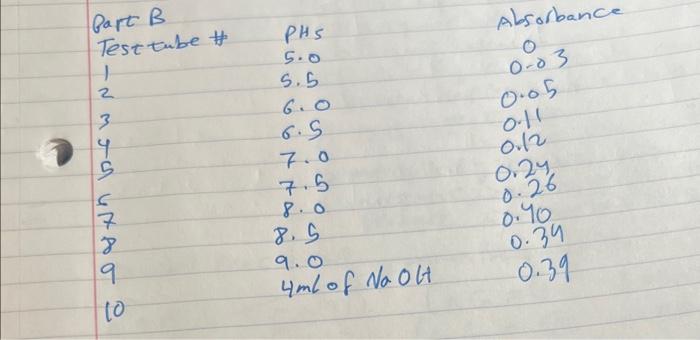 Part B
Test tube # PHs Absorbance
1 5.0 0
2 5.5 0.03
3 6.0 0.05
4 6.5 0.11
5 7.0 0.12
6 7.5 0.24
7 8.0 0.26
8 8.5 0.40
9 9.0 0.34
10 4ml of NaOH 0.39